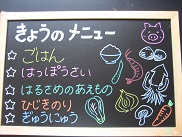 きょうのメニュー
☆ごはん
☆はっぽうさい
☆はるさめのあえもの
☆ひじきのり
☆ぎゅうにゅう